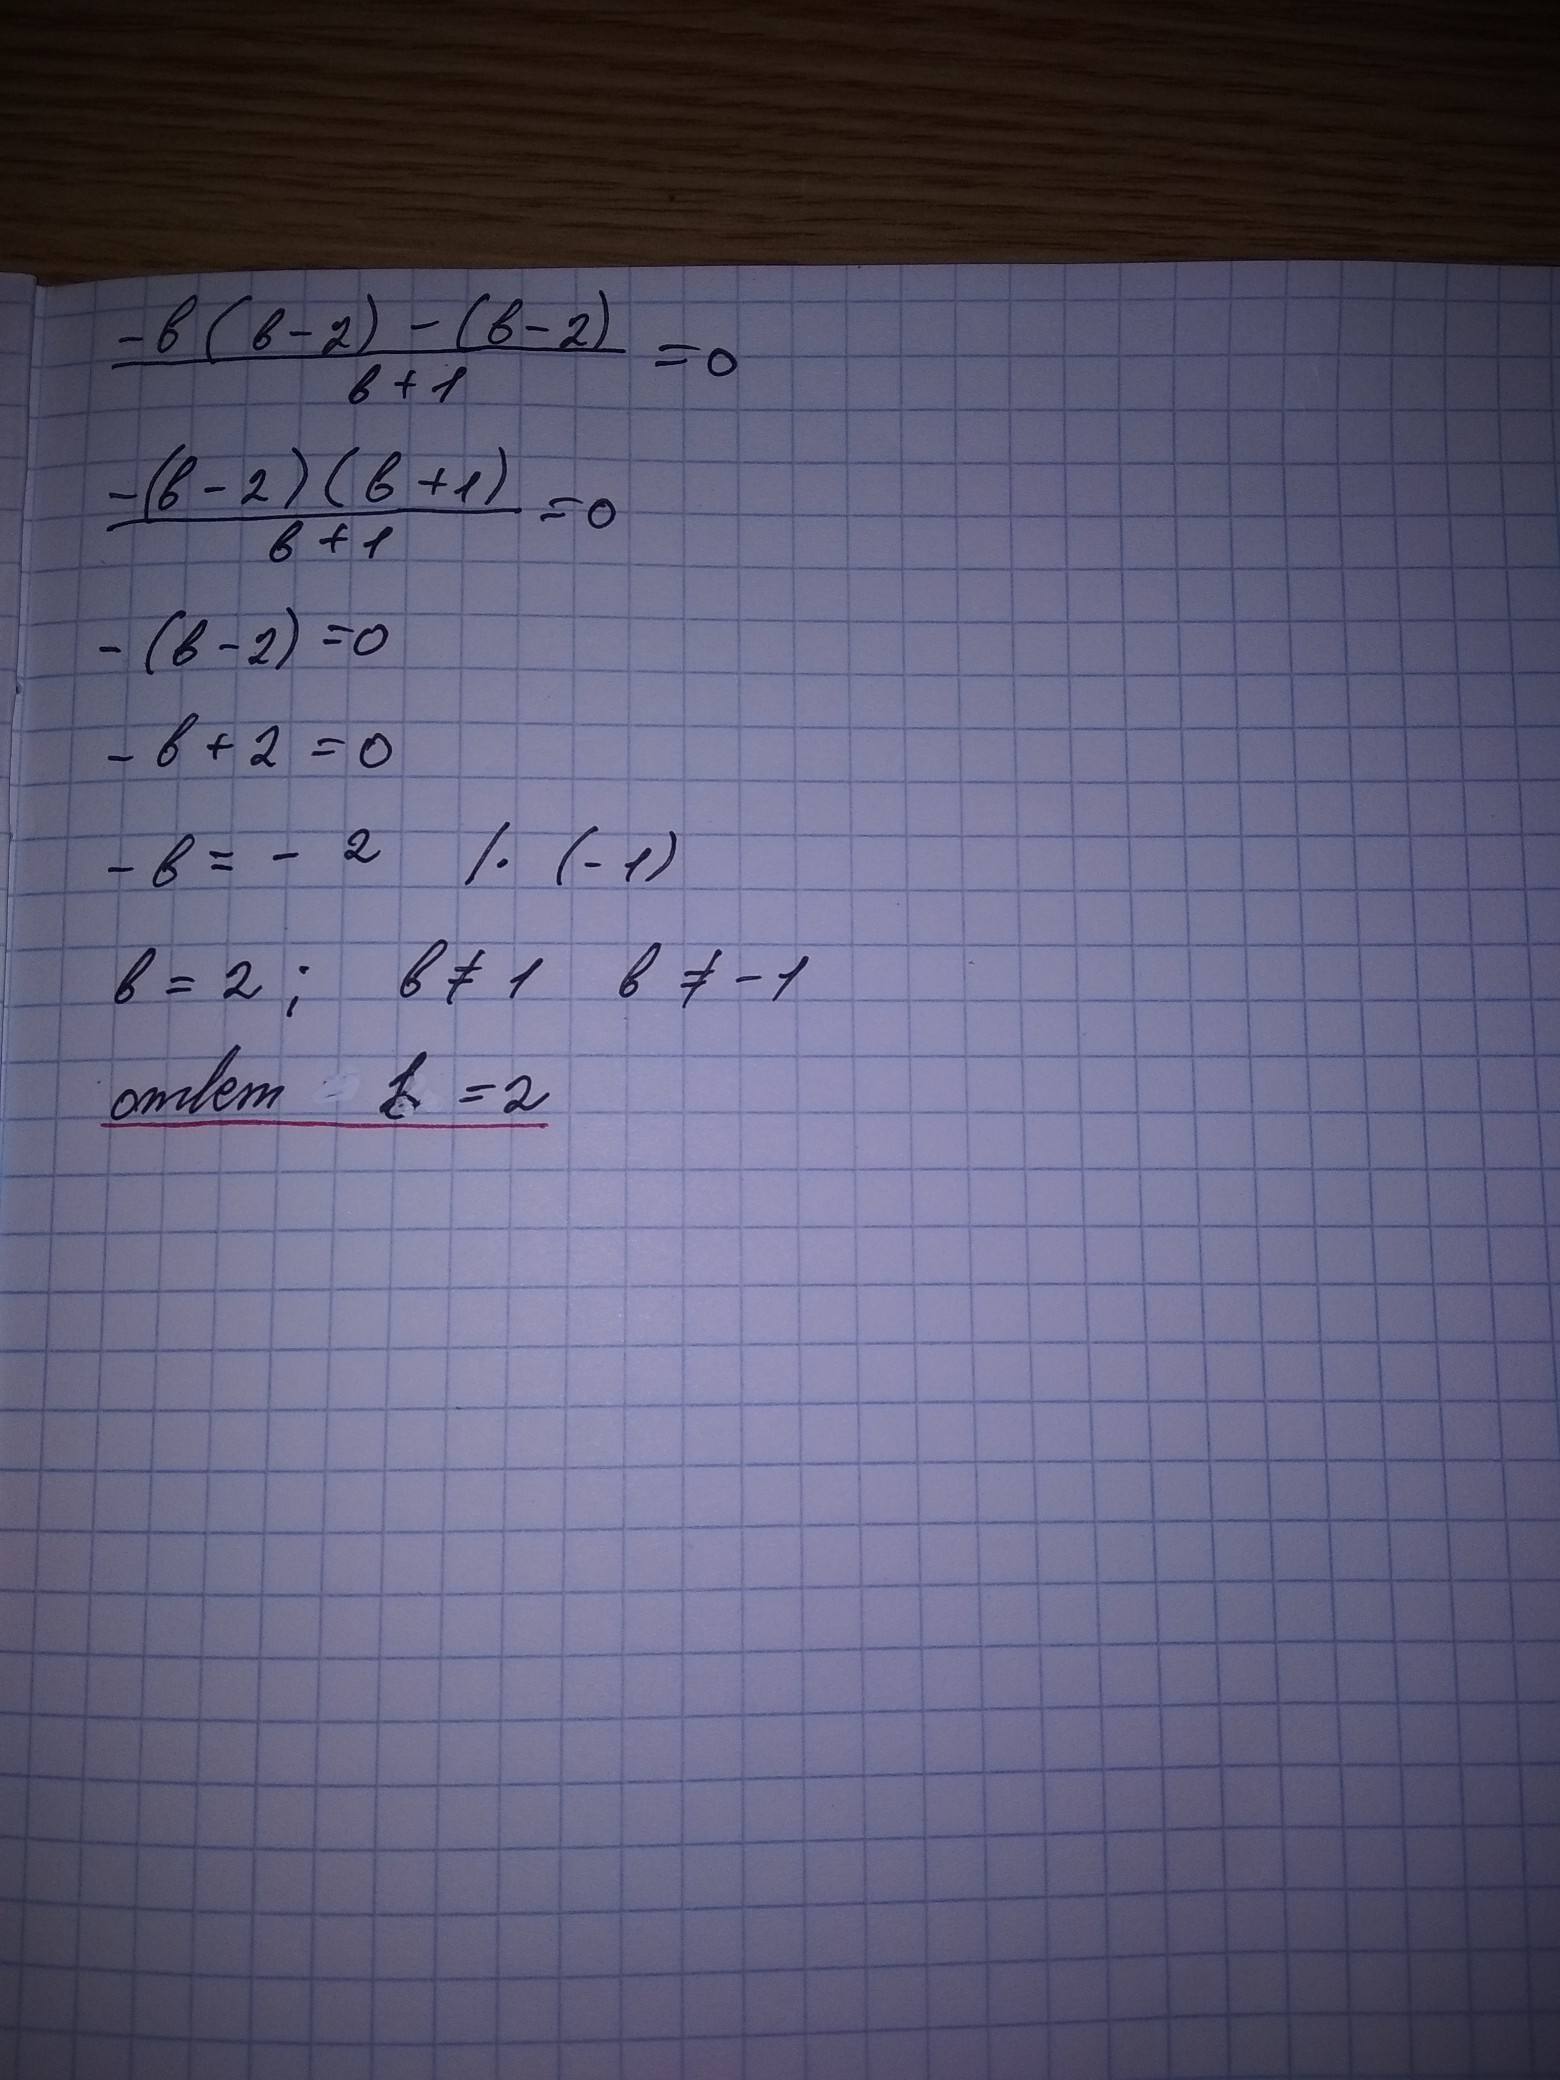 -в(в-2)-(в-2)
в+1
=0
-(в-2)(в+1)
в+1
=0
-(в-2)=0
-в+2=0
-в=-2 /·(-1)
в=2; в≠1 в≠-1
ответ в=2